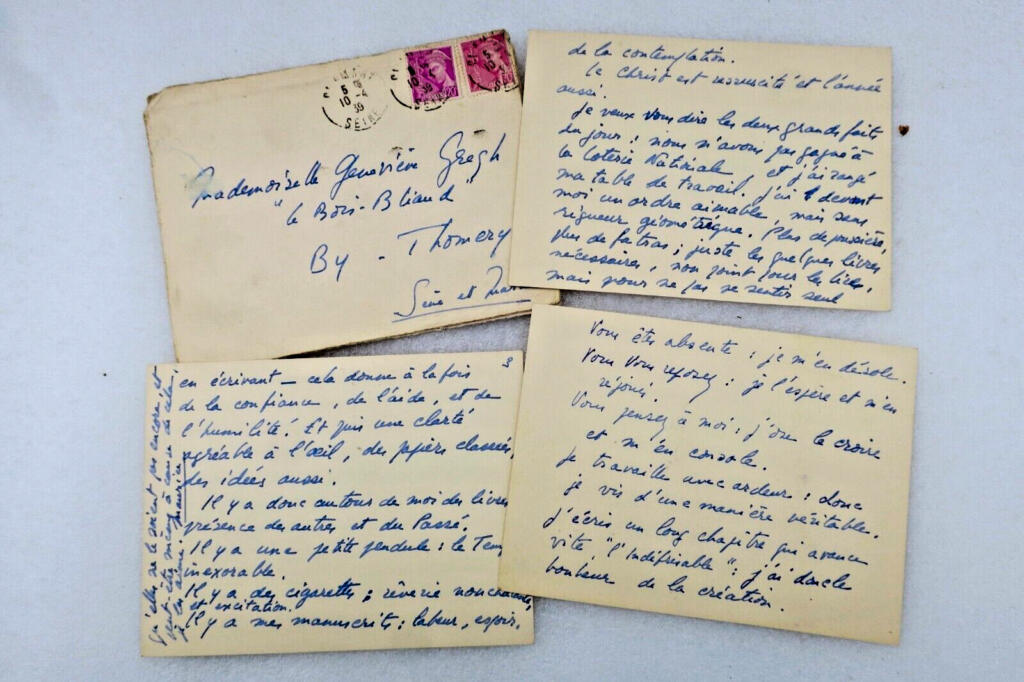 5
10-4
39
SEINE
5
10-4
39
SEINE
Mademoiselle Geneviève Gregh
"Le Bois-Bliaud"
By - Thomery
Seine et Mar
de la contemplation.
Le Christ est ressuscité et l'année
aussi.
Je veux vous dire les deux grands faits
du jour : nous n'avons pas gagné à
la Loterie Nationale, et j'ai rangé
ma table de travail. J'ai devant
moi un ordre aimable, mais sans
rigueur géométrique. Plus de poussière,
plus de fatras ; juste les quelques livres
nécessaires, non point pour les lire,
mais pour ne pas se sentir seul
3
en écrivant — cela donne à la fois
de la confiance, de l'aide, et de
l'humilité. Et puis une clarté
agréable à l'œil, des papiers classés,
des idées aussi.
Il y a donc autour de moi des livres
présence des autres et du Passé.
Il y a une petite pendule : le Tem
inexorable.
Il y a des cigarettes ; rêverie nonchalante
et excitation.
Il y a mes manuscrits : labeur, espoir,
qu'elles ne le soient pas encore, et
peut-être même à cause de cela,
je les aime
Maurice
Vous êtes absente : je m'en désole.
Vous vous reposez : je l'espère et m'en
réjouis.
Vous pensez à moi : j'ose le croire
et m'en console.
Je travaille avec ardeur : donc
je vis d'une manière véritable.
J'écris un long chapitre qui avance
vite, "l'Indéfinissable" ; j'ai donc le
bonheur de la création.